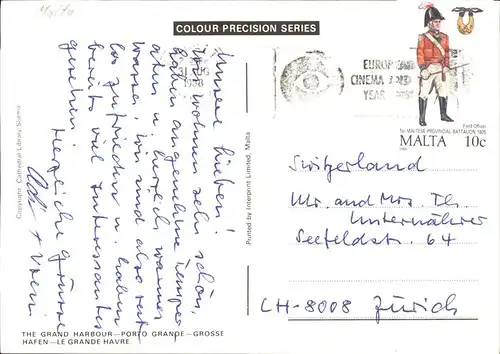 COLOUR PRECISION SERIES
Unsere Lieben!
Wir wohnen sehr schön,
haben angenehme Temper.
u. herrlich warmes
Wasser, wir sind also rest-
los zufrieden u. haben
bereits viel Interessantes
gesehen.
Herzliche Grüsse
+ Vreni
Copyright: Cathedral Library, Sliema
Printed by Interprint Limited, Malta
1988
EUROPEAN
CINEMA AND
YEAR
Field Officer
1st MALTESE PROVINCIAL BATTALION 1805
MALTA 10c
Switzerland
Mr. and Mrs. Th.
Unternährer
Seefeldstr. 64
CH-8008 Zürich
THE GRAND HARBOUR—PORTO GRANDE—GROSSE
HAFEN—LE GRANDE HAVRE.